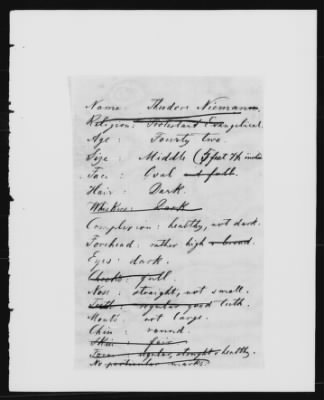 Name: Thudore Niemann.
Religion: Protestant Evangelical.
Age: Fourty two.
Size: Middle (5 feet
Face: Oval and full.
Hair: Dark.
Whiskers: Dark
Complexion: healthy, not dark.
Forehead: rather high & broad.
Eyes: dark.
Cheeks: full.
Nose: straight, not small.
Teeth: regular good teeth.
Mouth: not large.
Chin: round.
Skin: fair
regular, straight & healthy.
No particular marks.